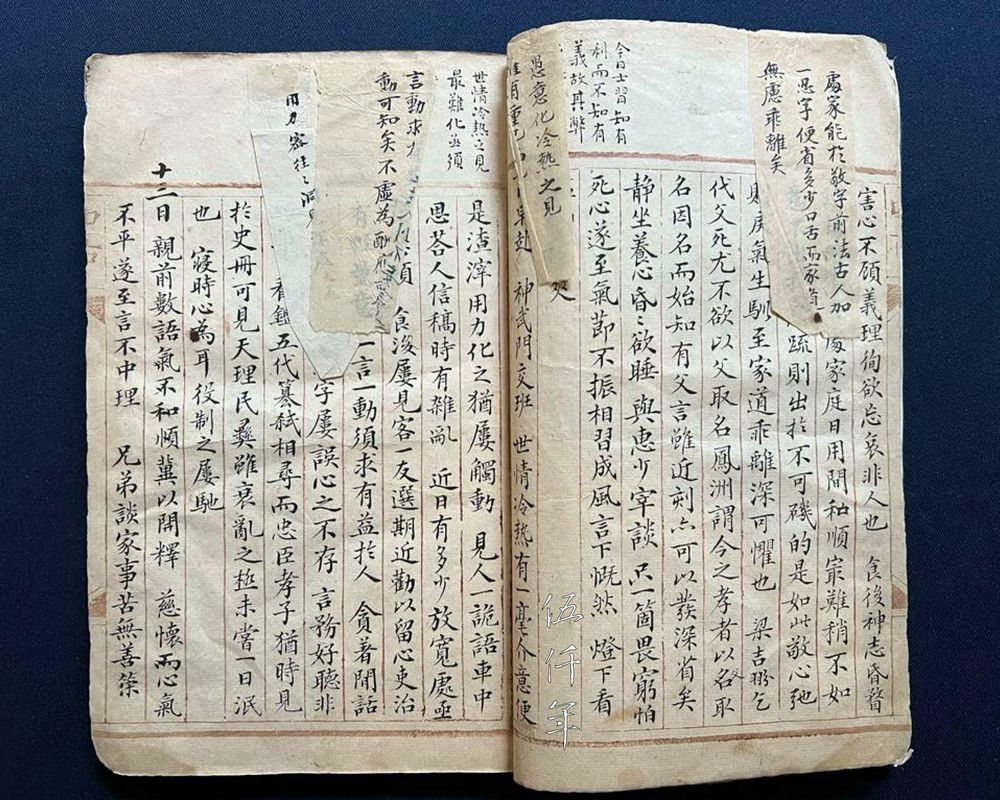 處家能於敬字前法古人加
一忍字便省多少口舌而家
無慮乖離矣
今日士習知有
利而不知有
義故其弊
愚意化冷熱之見
害心不顧義理徇欲忘哀非人也 食後神志昏瞀
處家庭日用間和順最難稍不如
疏則出於不可磯的是如此敬心弛
戾氣生馴至家道乖離深可懼也 梁吉翂乞
代父死尤不欲以父取名鳳洲謂今之孝者以名取
名因名而始知有父言雖近刻亦可以發深省矣
静坐養心昏〻欲睡 與惠少宰談 只一箇畏窮怕
死心遂至氣節不振相習成風言下慨然 燈下看
神武門交班 世情冷熱有一毫介意便
世情冷熱之見
最難化必須
言動求
動可知矣不虛為酬應
是渣滓用力化之猶屢觸動 見人一詭語車中
思荅人信稿時有雜亂 近日有多少放寬處亟
須 食後屢見客一友選期近勸以留心吏治
一言一動須求有益於人 貪著閒話
字屢誤心之不存 言務好聽非
看鑑五代篡弒相尋而忠臣孝子猶時見
於史冊可見天理民彝雖衰亂之極未嘗一日泯
也 寢時心為耳役制之屢馳
十二日 親前數語氣不和順冀以開釋 慈懷而心氣
不平遂至言不中理 兄弟談家事苦無善策
伍仟年